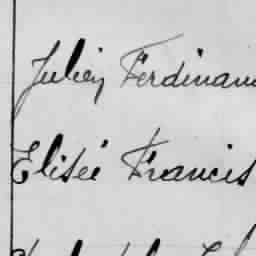 Julien Ferdinan
Eliseé Francis